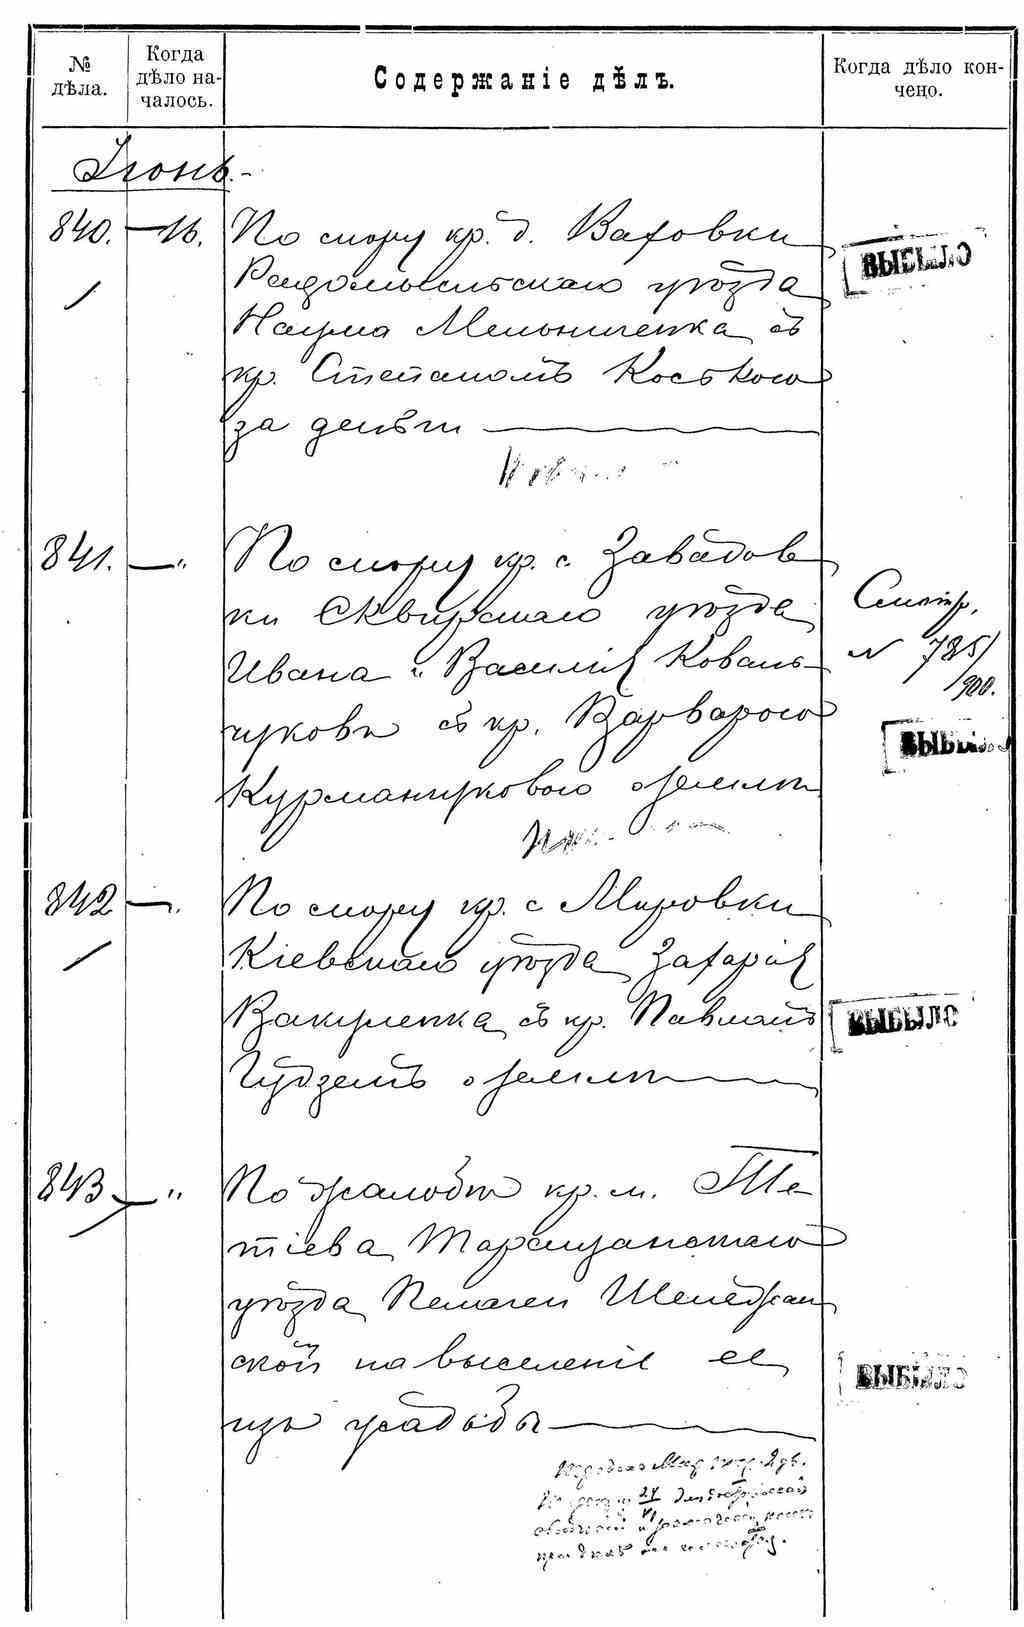 № дѣла.
Когда дѣло на-
чалось.
Содержаніе дѣлъ.
Когда дѣло кон-
чено.
Іюнь.-
840. — 16. По спору кр. д. Ваховки
Радомысльскаго уѣзда
Наума Мельниченка съ
кр. Степаномъ Коського
за деньги
ВЫБЫЛО
841. — " По спору кр. с. Завадов
ки Сквирскаго уѣзда
Ивана и Василія Коваль-
чуковъ съ кр. Варварою
Курманчуковою о землѣ
Смотр.
N 785/
900.
ВЫБЫЛО
842 — " По спору кр. с. Мировки
Кіевскаго уѣзда Захарія
Вакуленка съ кр. Павломъ
Гудземъ о землѣ
ВЫБЫЛО
843 — " По жалобѣ кр. м. Те-
тіева Таращанскаго
уѣзда Пелагеи
ской на выселеніе ее
изъ усадьбы
ВЫБЫЛО